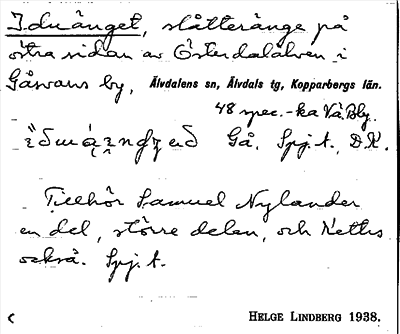 Iduänget, slåtteränge på
östra sidan av Österdalälven i
Gåsvars by, Älvdalens sn, Älvdals tg, Kopparbergs län.
48 spec.-ka Vä. Bly.
Gå. Spj. A., D.K.
Tillhör Samuel Nylander
en del, större delen, och Kettis
också. Spj. A.
HELGE LINDBERG 1938.